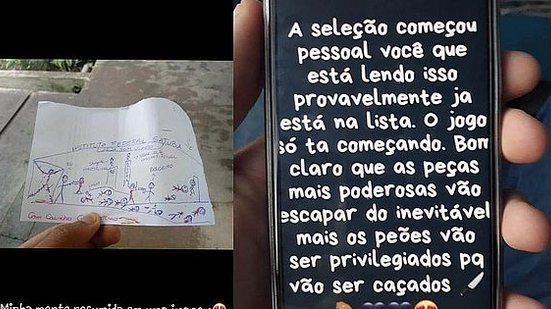 INSTITUTO FEDERAL
A seleção começou
pessoal você que
está lendo isso
provavelmente ja
está na lista. O jogo
só ta começando. Bom
claro que as peças
mais poderosas vão
escapar do inevitável
mais os peões vão
ser privilegiados pq
vão ser caçados